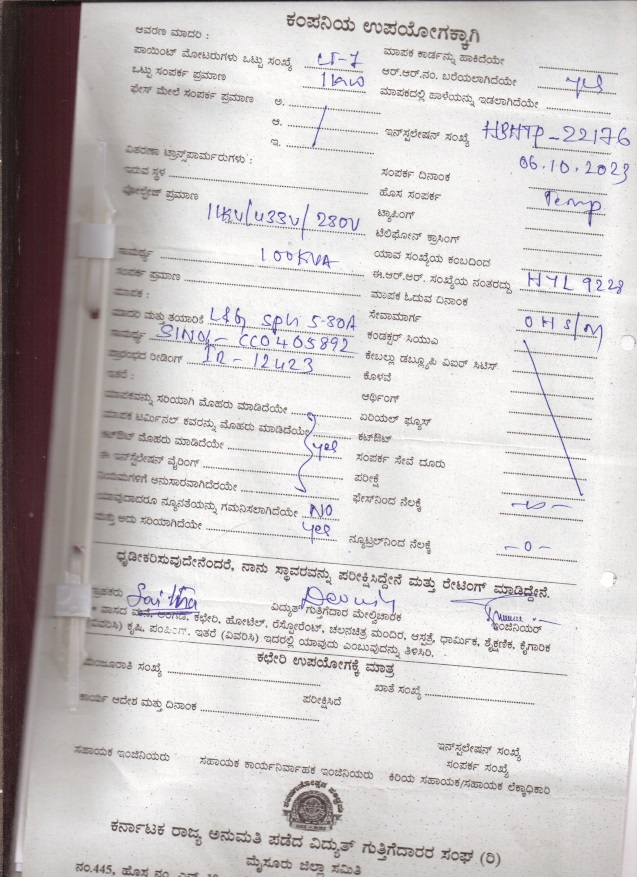 ಕಂಪನಿಯ ಉಪಯೋಗಕ್ಕಾಗಿ
ಆವರಣ ಮಾದರಿ :
ಪಾಯಿಂಟ್ ಮೋಟರುಗಳು ಒಟ್ಟು ಸಂಖ್ಯೆ LT-7
ಒಟ್ಟು ಸಂಪರ್ಕ ಪ್ರಮಾಣ 1KW
ಫೇಸ್ ಮೇಲೆ ಸಂಪರ್ಕ ಪ್ರಮಾಣ ಅ.
ಆ.
ಇ.
ಮಾಪಕ ಕಾರ್ಡನ್ನು ಹಾಕಿದೆಯೇ
ಆರ್.ಆರ್.ನಂ. ಬರೆಯಲಾಗಿದೆಯೇ yes
ಮಾಪಕದಲ್ಲಿ ಹಾಳೆಯನ್ನು ಇಡಲಾಗಿದೆಯೇ
ಇನ್‌ಸ್ಟಲೇಷನ್ ಸಂಖ್ಯೆ HBHTP-22176
ವಿತರಣಾ ಟ್ರಾನ್ಸ್‌ಪಾರ್ಮರುಗಳು :
ಇರುವ ಸ್ಥಳ
ವೋಲ್ಟೇಜ್ ಪ್ರಮಾಣ
11KV/433V/230V
ಸಾಮರ್ಥ್ಯ 100KVA
ಸಂಪರ್ಕ ಪ್ರಮಾಣ
ಮಾಪಕ :
ಮಾದರಿ ಮತ್ತು ತಯಾರಿಕೆ L&G Sph 5-30A
ಸಾಮರ್ಥ್ಯ SINO/- CC0405892
ಪ್ರಾರಂಭದ ರೀಡಿಂಗ್ IR-12423
ಇತರೆ :
ಸಂಪರ್ಕ ದಿನಾಂಕ 06.10.2023
ಹೊಸ ಸಂಪರ್ಕ Temp
ಟ್ಯಾಪಿಂಗ್
ಟೆಲಿಫೋನ್ ಕ್ರಾಸಿಂಗ್
ಯಾವ ಸಂಖ್ಯೆಯ ಕಂಬದಿಂದ
ಈ.ಆರ್.ಆರ್. ಸಂಖ್ಯೆಯ ನಂತರದ್ದು HYL 9228
ಮಾಪಕ ಓದುವ ದಿನಾಂಕ
ಸೇವಾಮಾರ್ಗ OHS/M
ಕಂಡಕ್ಟರ್ ಸಿಯುಎ
ಕೇಬಲ್ಲು ಡಬ್ಲ್ಯೂಪಿ ವಿಐರ್ ಸಿಟಿಸ್
ಕೊಳವೆ
ಆರ್ಥಿಂಗ್
ಮಾಪಕವನ್ನು ಸರಿಯಾಗಿ ಮೊಹರು ಮಾಡಿದೆಯೇ
ಮಾಪಕ ಟರ್ಮಿನಲ್ ಕವರನ್ನು ಮೊಹರು ಮಾಡಿದೆಯೇ
ಕಟ್‌ಔಟ್ ಮೊಹರು ಮಾಡಿದೆಯೇ yes
ಈ ಇನ್‌ಸ್ಟಲೇಷನ್ ವೈರಿಂಗ್
ನಿಯಮಗಳಿಗೆ ಅನುಸಾರವಾಗಿದೆಯೇ
ಯಾವುದಾದರೂ ನ್ಯೂನತೆಯನ್ನು ಗಮನಿಸಲಾಗಿದೆಯೇ NO
ಮತ್ತು ಅದು ಸರಿಯಾಗಿದೆಯೇ yes
ಏರಿಯಲ್ ಫ್ಯೂಸ್
ಕಟ್‌ಔಟ್
ಸಂಪರ್ಕ ಸೇವೆ ದೂರು
ಪರೀಕ್ಷೆ
ಫೇಸ್‌ನಿಂದ ನೆಲಕ್ಕೆ
ನ್ಯೂಟ್ರಲ್‌ನಿಂದ ನೆಲಕ್ಕೆ -0-
ಧೃಡೀಕರಿಸುವುದೇನೆಂದರೆ, ನಾನು ಸ್ಥಾವರವನ್ನು ಪರೀಕ್ಷಿಸಿದ್ದೇನೆ ಮತ್ತು ರೇಟಿಂಗ್ ಮಾಡಿದ್ದೇನೆ.
ವಿದ್ಯುತ್ ಗುತ್ತಿಗೆದಾರ ಮೇಲ್ವಿಚಾರಕ ಇಂಜಿನಿಯರ್
ವಾಸದ ಮನೆ, ಅಂಗಡಿ, ಕಛೇರಿ, ಹೋಟೆಲ್, ರೆಸ್ಟೋರೆಂಟ್, ಚಲನಚಿತ್ರ ಮಂದಿರ, ಆಸ್ಪತ್ರೆ, ಧಾರ್ಮಿಕ, ಶೈಕ್ಷಣಿಕ, ಕೈಗಾರಿಕ
(ವಿವರಿಸಿ) ಕೃಷಿ, ಪಂಪಿಂಗ್. ಇತರೆ (ವಿವರಿಸಿ) ಇದರಲ್ಲಿ ಯಾವುದು ಎಂಬುವುದನ್ನು ತಿಳಿಸಿರಿ.
ಕಛೇರಿ ಉಪಯೋಗಕ್ಕೆ ಮಾತ್ರ
ಮಂಜೂರಾತಿ ಸಂಖ್ಯೆ ಖಾತೆ ಸಂಖ್ಯೆ
ಕಾರ್ಯ ಆದೇಶ ಮತ್ತು ದಿನಾಂಕ ಪರೀಕ್ಷಿಸಿದೆ
ಇನ್‌ಸ್ಟಲೇಷನ್ ಸಂಖ್ಯೆ
ಸಂಪರ್ಕ ಸಂಖ್ಯೆ
ಸಹಾಯಕ ಇಂಜಿನಿಯರು ಸಹಾಯಕ ಕಾರ್ಯನಿರ್ವಾಹಕ ಇಂಜಿನಿಯರು ಕಿರಿಯ ಸಹಾಯಕ/ಸಹಾಯಕ ಲೆಕ್ಕಾಧಿಕಾರಿ
ಕರ್ನಾಟಕ ರಾಜ್ಯ ಅನುಮತಿ ಪಡೆದ ವಿದ್ಯುತ್ ಗುತ್ತಿಗೆದಾರರ ಸಂಘ (ರಿ)
ಮೈಸೂರು ಜಿಲ್ಲಾ ಸಮಿತಿ
ನಂ.445, ಹೊಸ ನಂ.